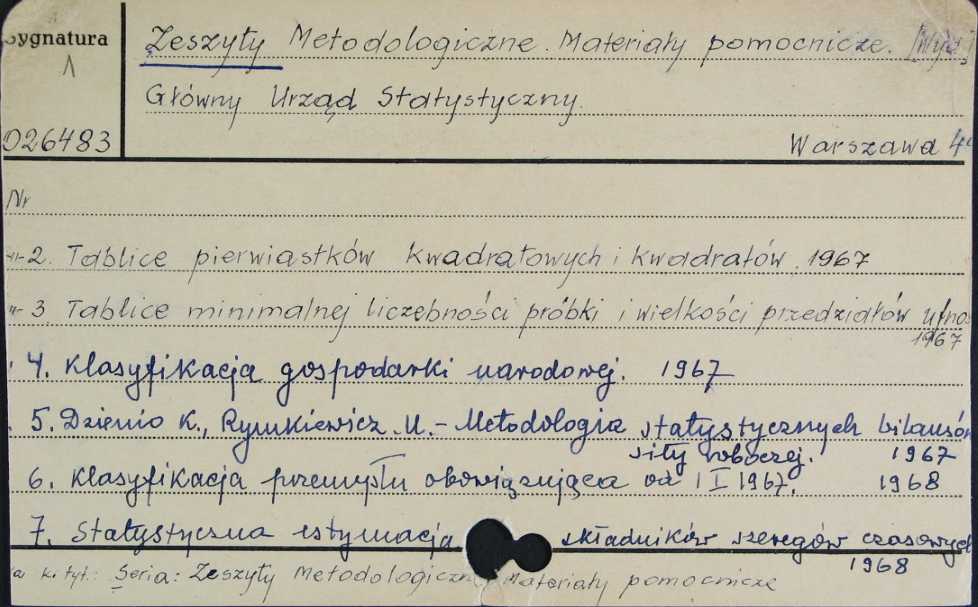 Sygnatura
Zeszyty Metodologiczne. Materiały pomocnicze. [Wyd.
Główny Urząd Statystyczny.
D26483
Warszawa 4°
Nr
-"- 2. Tablice pierwiastków kwadratowych i kwadratów. 1967
-"- 3. Tablice minimalnej liczebności próbki i wielkości przedziałów ufno
1967
4. Klasyfikacja gospodarki narodowej. 1967
5. Dzienio K., Rymkiewicz M. - Metodologia statystycznych bilansów
siły roboczej. 1967
6. Klasyfikacja przemysłu obowiązująca od 1 I 1967. 1968
7. Statystyczna estymacja składników szeregów czasowych
1968
k. tyt.: Seria: Zeszyty Metodologiczne Materiały pomocnicze